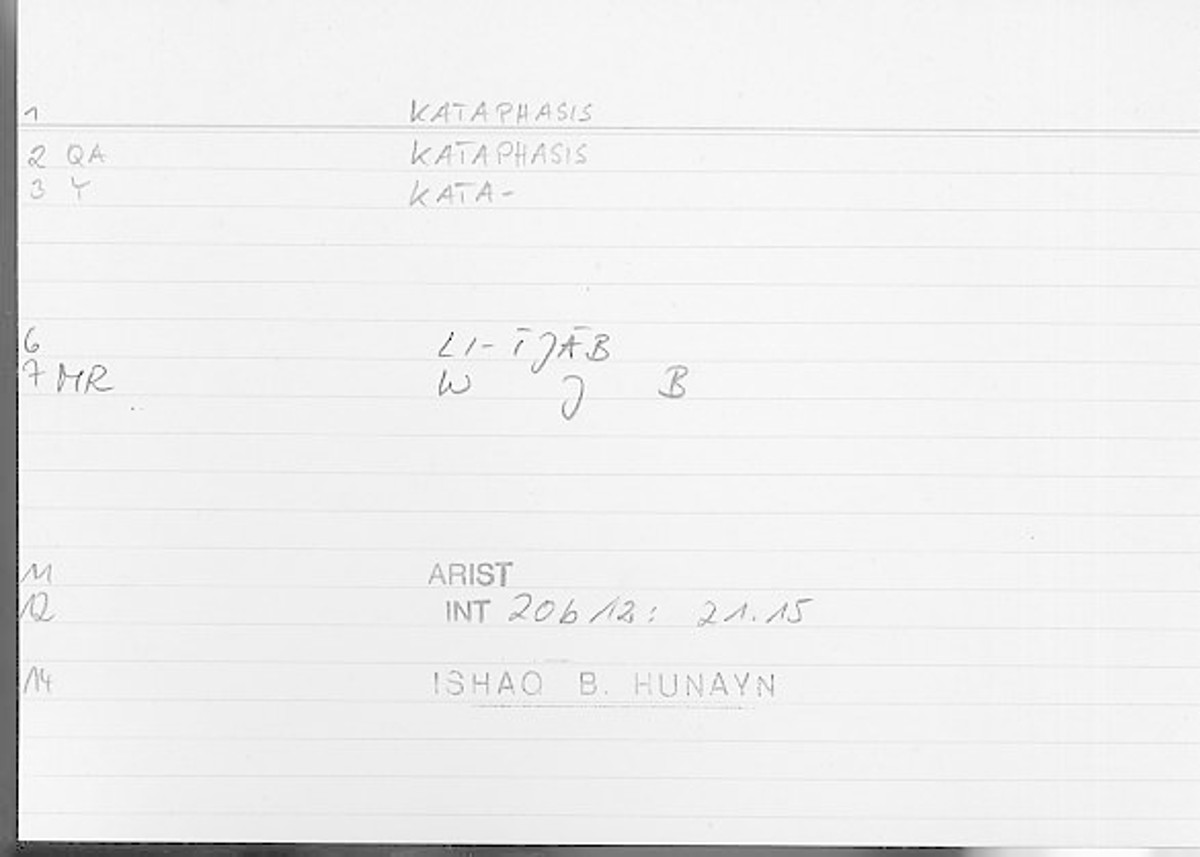 1 KATAPHASIS
2 QA KATAPHASIS
3 Y KATA-
6 LI-ĪJĀB
7 MR W J B
11 ARIST
12 INT 20b12: 21.15
14 ISHAQ B. HUNAYN